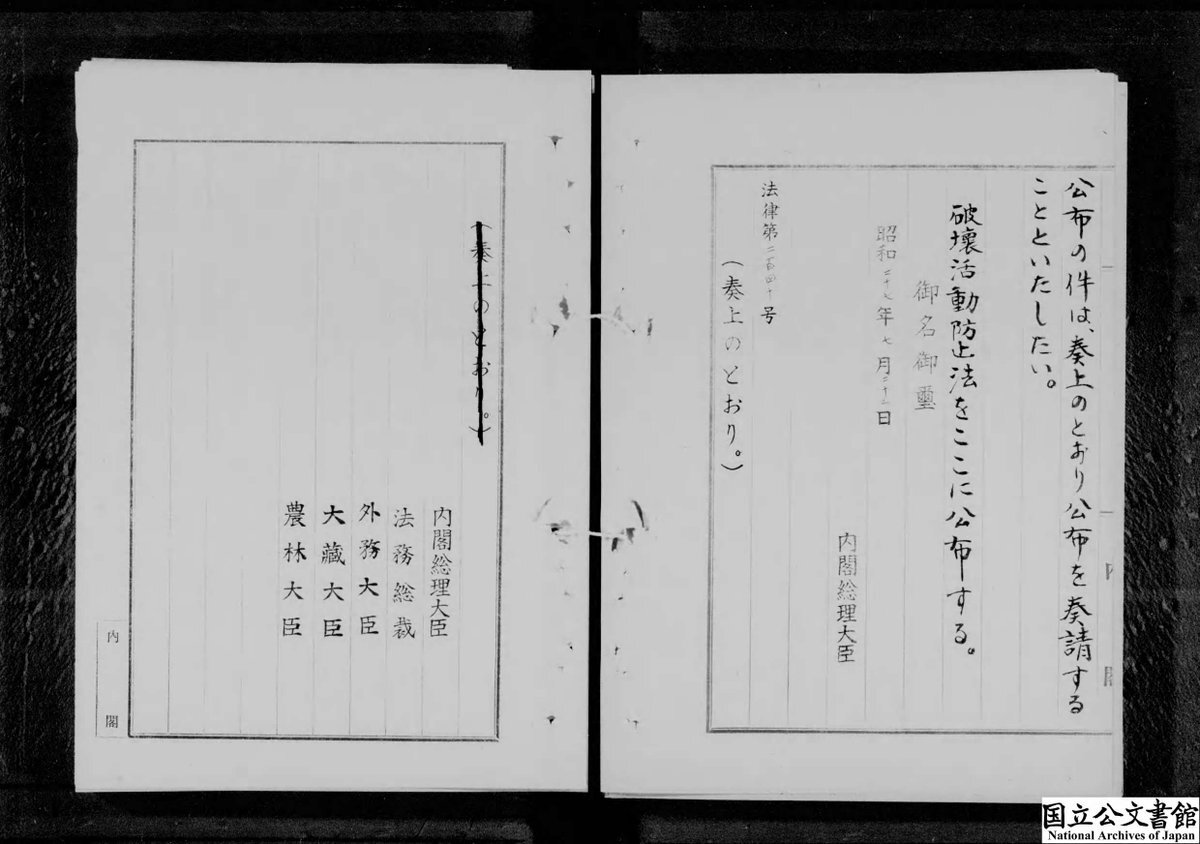 公布の件は、奏上のとおり公布を奏請する
ことといたしたい。
破壊活動防止法をここに公布する。
御名御璽
昭和二十七年七月二十一日
内閣総理大臣
法律第二百四十号
(奏上のとおり。)
(奏上のとおり。)
内閣総理大臣
法務総裁
外務大臣
大藏大臣
農林大臣
内閣
国立公文書館
National Archives of Japan